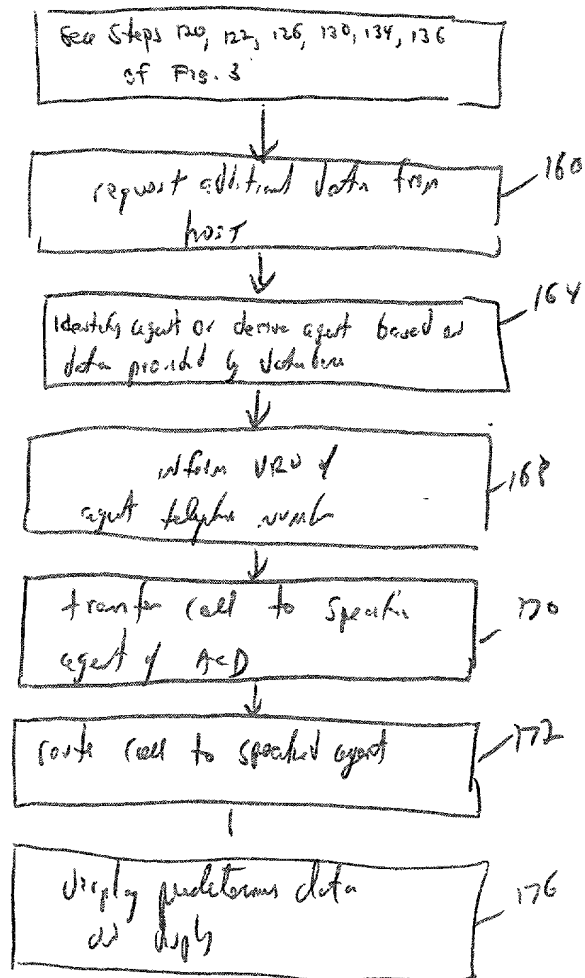 See Steps 120, 122, 126, 130, 134, 136
of Fig. 3
request additional data from
host
160
Identify agent or derive agent based on
data provided by database
164
inform VRU of
agent telephone number
168
transfer call to specific
agent of ACD
170
route call to specified agent
172
display predetermine data
on display
176